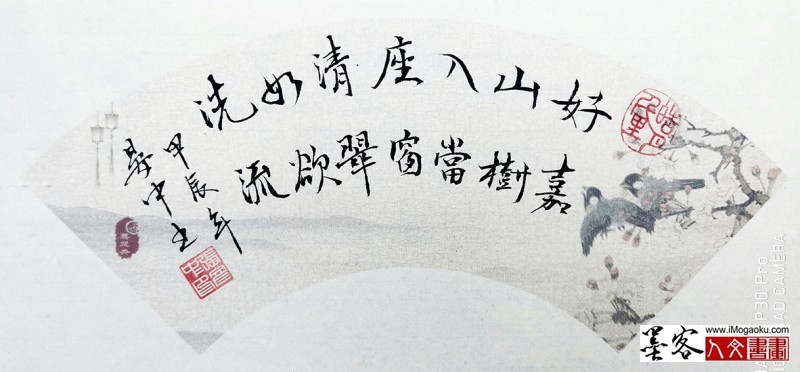 好山入座清如洗
嘉樹當窗翠欲流
甲辰年
中书
P30 Pro
AD CAMERA
墨客
www.iMogaoku.com
人文書畫